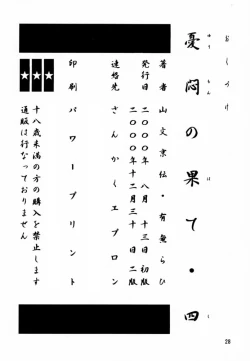 おくづけ
憂悶の果て・四
ゆうもんのはて・し
著者 山文京伝・有無らひ
発行日 二〇〇〇年 八月 十三日 初版
二〇〇〇年 十二月 三十日 二版
連絡先 さんかくエプロン
印刷 パワープリント
十八歳未満の方の購入を禁止します
通販は行なっておりません
28